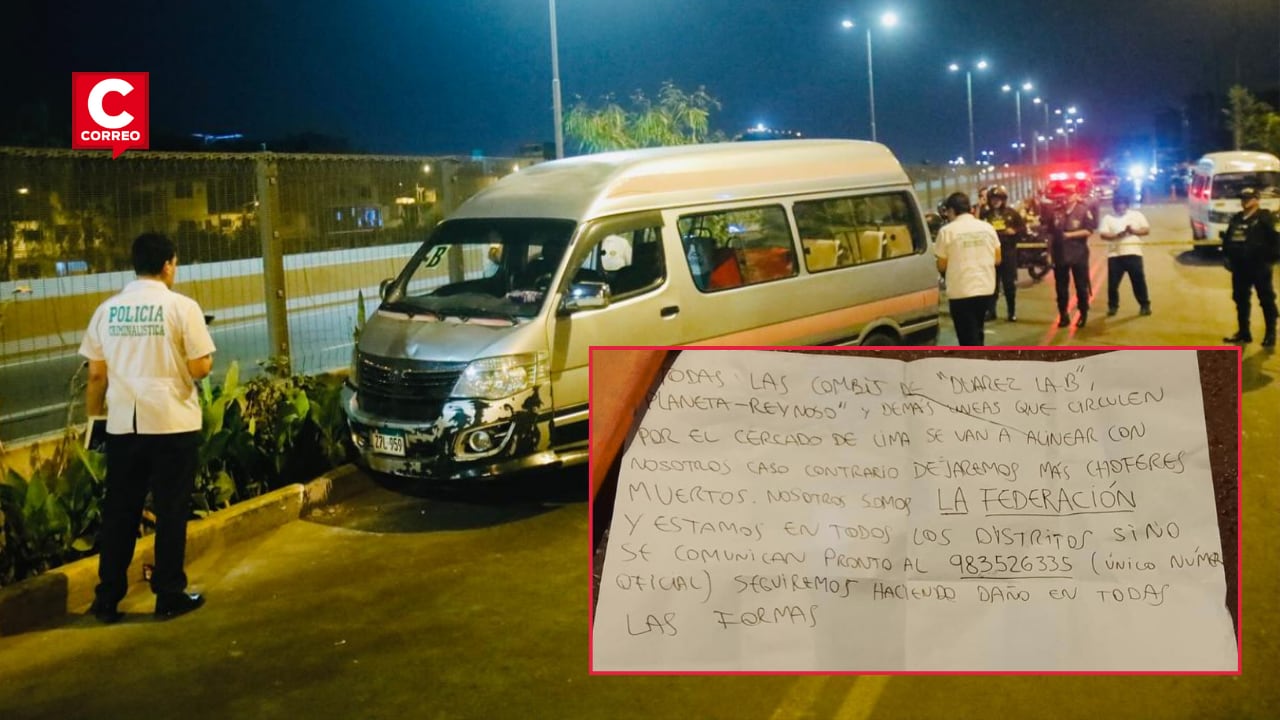 C
CORREO
POLICIA
CRIMINALISTICA
B
TODAS LAS COMBIS DE "DUAREZ LA B",
PLANETA-REYNOSO" Y DEMÁS LINEAS QUE CIRCULEN
POR EL CERCADO DE LIMA SE VAN A ALINEAR CON
NOSOTROS CASO CONTRARIO DEJAREMOS MÁS CHOFERES
MUERTOS. NOSOTROS SOMOS LA FEDERACIÓN
Y ESTAMOS EN TODOS LOS DISTRITOS SI NO
SE COMUNICAN PRONTO AL 983526335 (ÚNICO NÚMER
OFICIAL) SEGUIREMOS HACIENDO DAÑO EN TODAS
LAS FORMAS